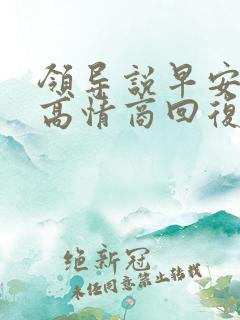 領导説早安
高情商回復
绝新冠
未任同意禁止转载